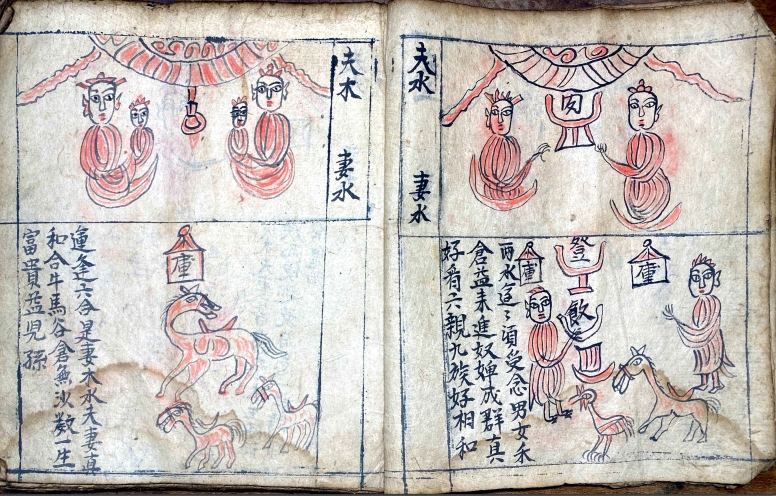 夫水
妻水
肉
倉
飲
两水
湏受念男女禾
倉益未進奴婢成群真
好看六親九族好相和
夫木
妻水
運逢六合是妻木水夫妻真
和合牛馬谷倉無沙數一生
富貴益児孫